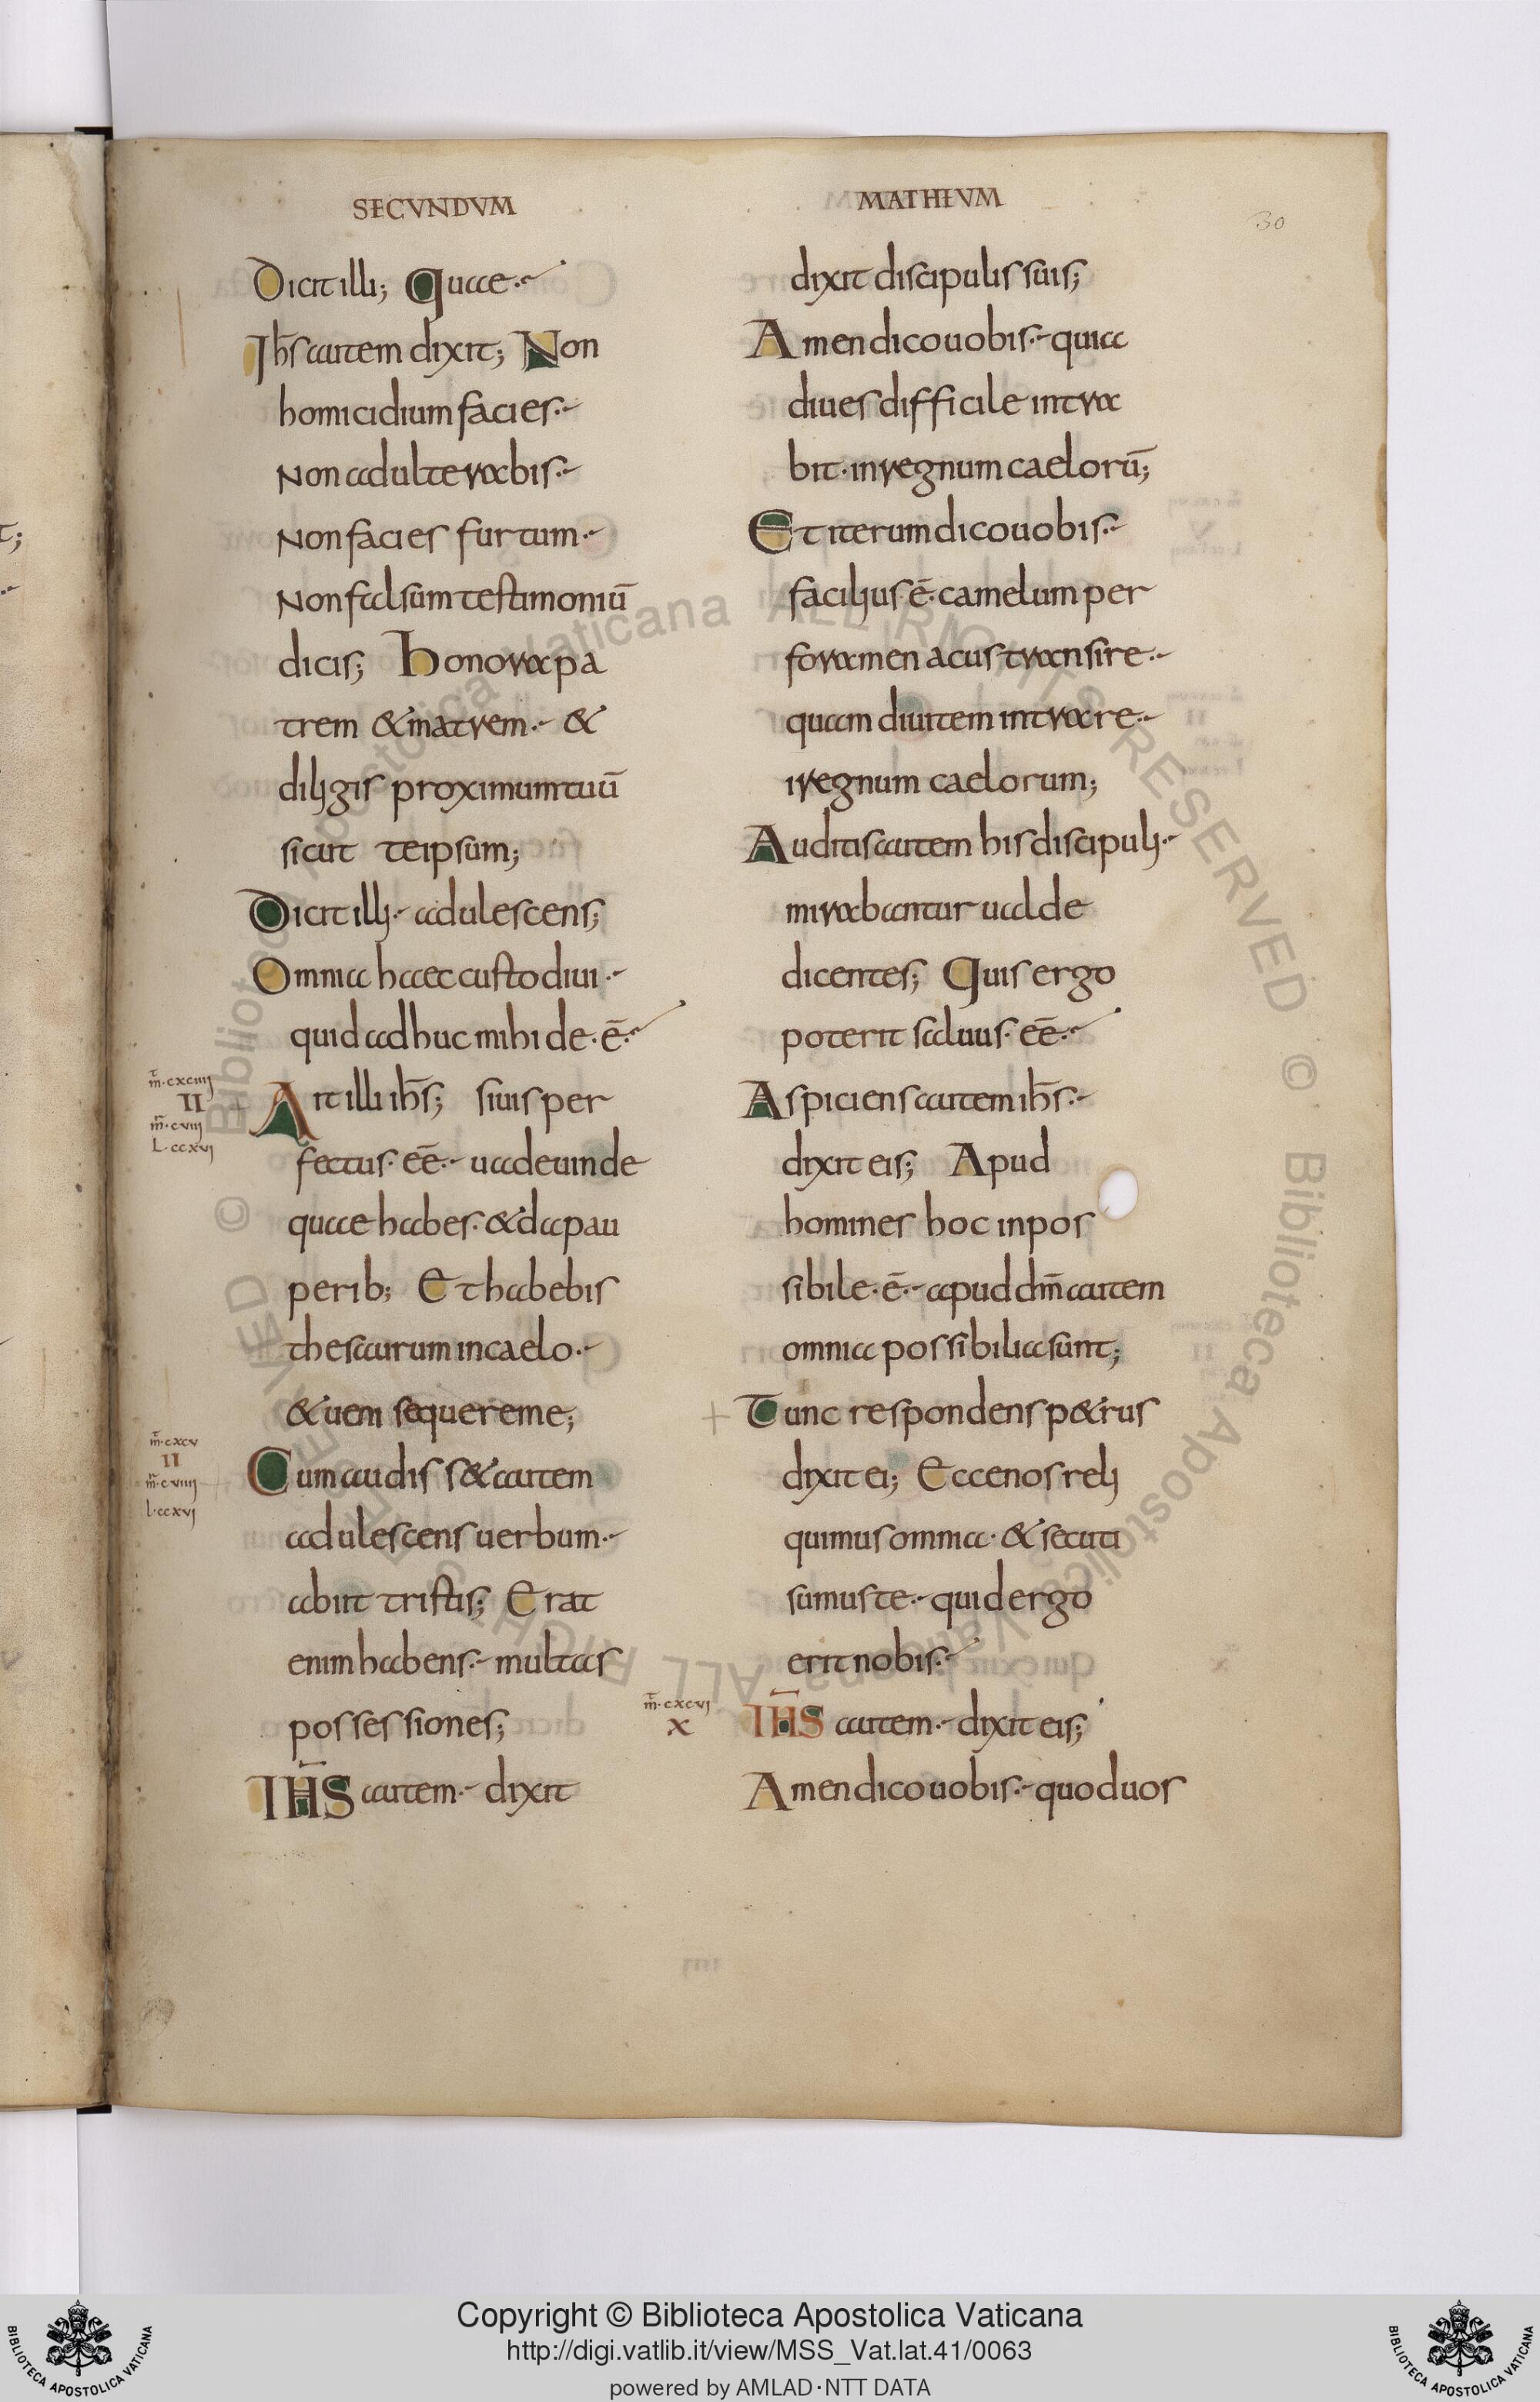 SECVNDVM
Dicit illi; Quae·
Ihs̄ autem dixit; Non
homicidium facies·
Non adulterabis·
Non facies furtum·
Non falsum testimoniū
dicis; Honora pa
trem & matrem· &
diligis proximum tuū
sicut teipsum;
Dicit illi· adulescens;
Omnia haec custodiui·
quid adhuc mihi de·ē·
m̄·cxciiii
II
m̄·cviii
L·ccxvi
Ait illi ihs̄; si uis per
fectus·eē· uade uinde
quae habes·& da pau
perib; Et habebis
thesaurum in caelo·
& ueni sequere me;
m̄·cxcv
II
m̄·cviiii
L·ccxvi
Cum audisset autem
adulescens uerbum·
abiit tristis; Erat
enim habens· multas
possessiones;
IHS̄ autem· dixit
MATHEVM
30
dixit discipulis suis;
Amen dico uobis· quia
diues difficile intra
bit·in regnum caelorū;
Et iterum dico uobis·
facilius·ē·camelum per
foramen acus transire·
quam diuitem intrare·
i regnum caelorum;
Auditis autem his discipuli·
mirabantur ualde
dicentes; Quis ergo
poterit saluus·eē·
Aspiciens autem ihs̄·
dixit eis; Apud
homines hoc inpos
sibile·ē· apud dm̄ autem
omnia possibilia sunt;
Tunc respondens p&rus
dixit ei; Ecce nos reli
quimus omnia·& secuti
sumus te· quid ergo
erit nobis·
m̄·cxcvi
X
IHS̄ autem· dixit eis;
Amen dico uobis· quod uos
Copyright © Biblioteca Apostolica Vaticana
http://digi.vatlib.it/view/MSS_Vat.lat.41/0063
powered by AMLAD·NTT DATA
BIBLIOTECA APOSTOLICA VATICANA
BIBLIOTECA APOSTOLICA VATICANA
© Biblioteca Apostolica Vaticana ALL RIGHTS RESERVED © Biblioteca Apostolica Vaticana ALL RIGHTS RESERVED